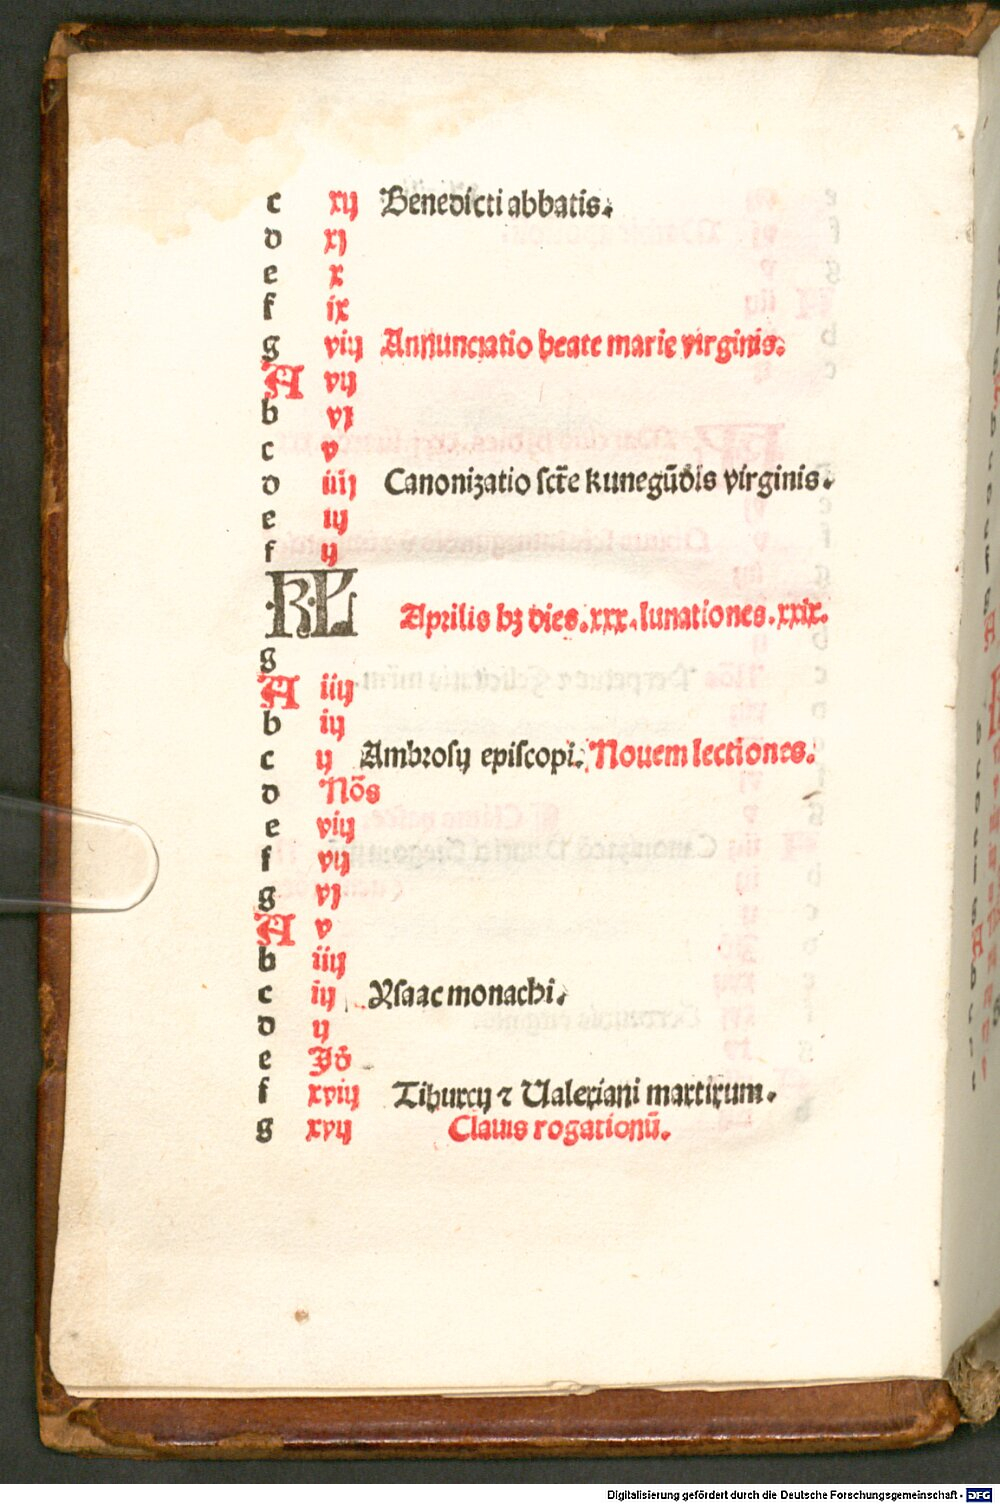 c xij Benedicti abbatis.
d xj
e x
f ix
g viij Annunciatio beate marie virginis.
A vij
b vj
c v
d iiij Canonizatio sct̄e kunegūdis virginis.
e iij
f ij
KL Aprilis hꝫ dies.xxx.lunationes.xxix.
g
A iiij
b iij
c ij Ambrosij episcopi. Nouem lectiones.
d Nōs
e viij
f vij
g vj
A v
b iiij
c iij Ysaac monachi.
d ij
e Id̄
f xviij Tiburcij ⁊ Valeriani martirum.
g xvij Clauis rogationū.
Digitalisierung gefördert durch die Deutsche Forschungsgemeinschaft - DFG